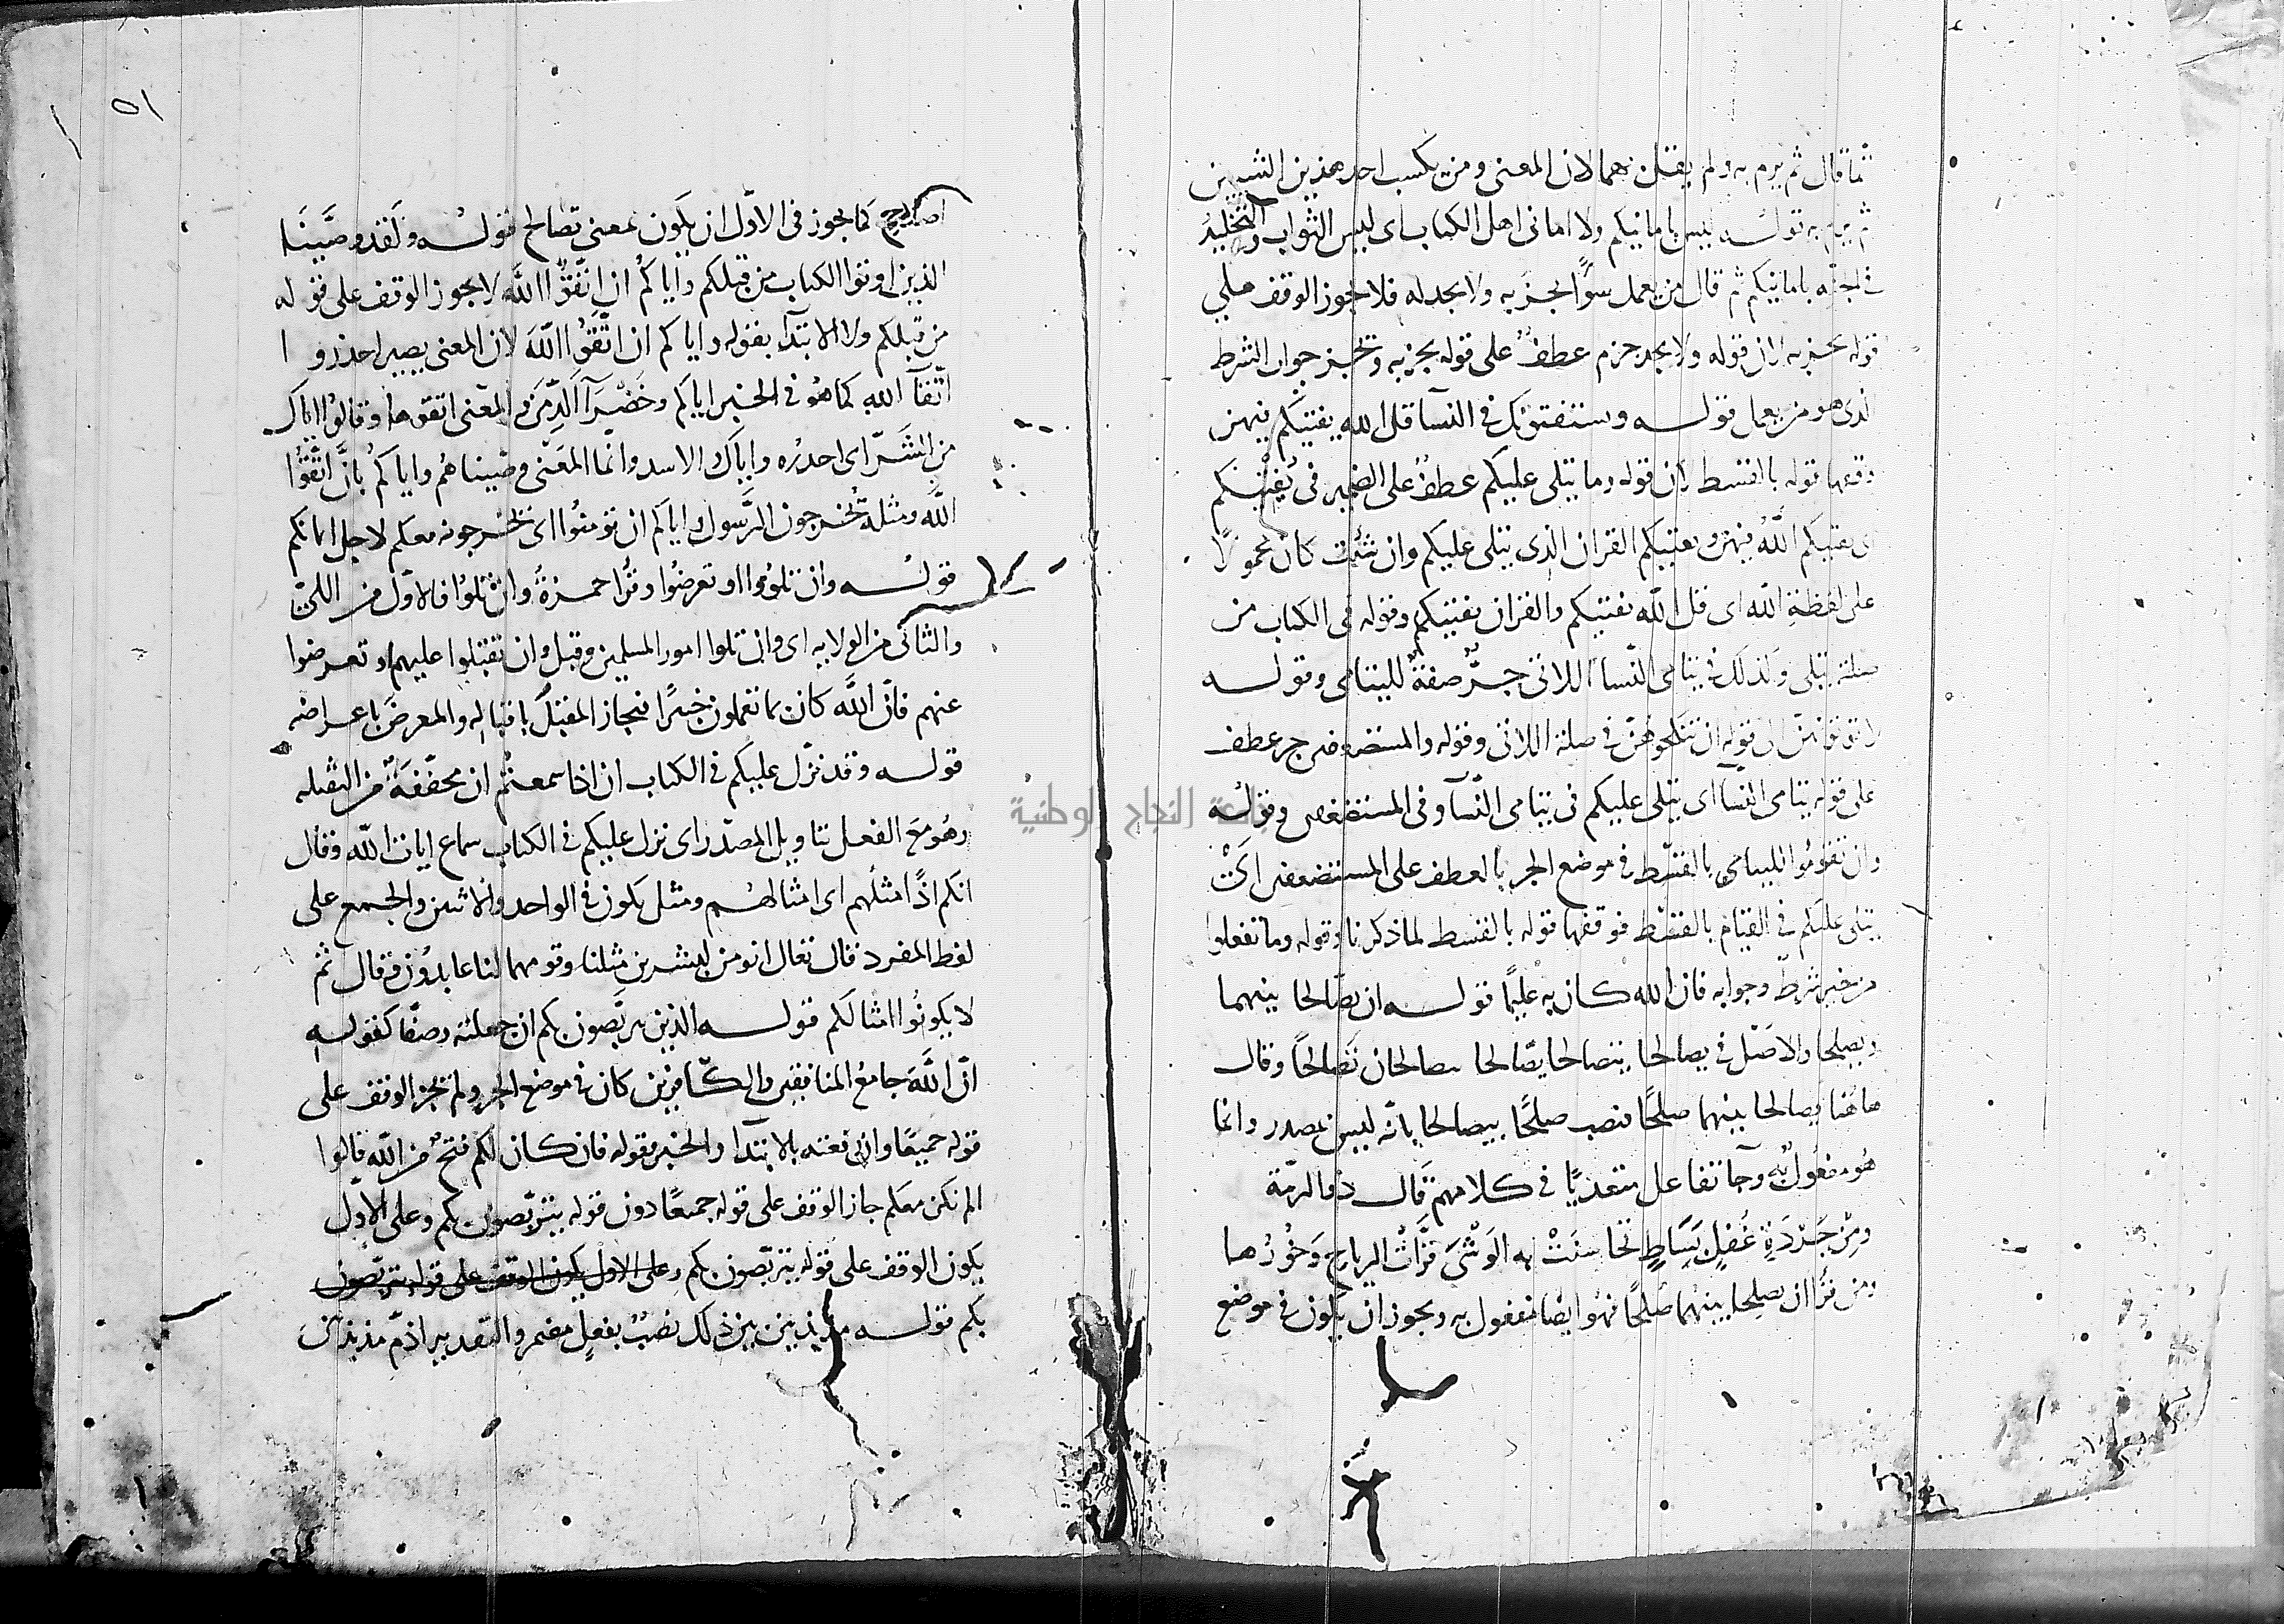 ثم قال ثم يرم به ولم يقل بهما لان المعنى ومن يكسب احد هذين الشيئين
ثم يرم به قوله ليس بامانيكم ولا امانى اهل الكتاب اى ليس الثواب والتخليد
فى الجنة بامانيكم ثم قال من يعمل سوًا يجز به ولا يجد له فلا يجوز الوقف على
قوله يجز به لان قوله ولا يجد جزم عطف على قوله يجز به ويجز جواب الشرط
الذى هو من يعمل قوله ويستفتونك فى النسآ قل الله يفتيكم فيهن
وقفها قوله بالقسط لان قوله وما يتلى عليكم عطف على الضمير فى يفتيكم
اى يفتيكم اللَّه فيهن ويفتيكم القران الذى يتلى عليكم وان شئت كان محمولًا
على لفظة الله اى قل الله يفتيكم والقران يفتيكم وقوله فى الكتاب من
صلة يتلى وكذلك فى يتامى النسآ اللاتى جرٌّ صفةٌ لليتامى وقوله
لا تؤتونهن الى قوله ان تنكحوهن فى صلة اللاتى وقوله والمستضعفين جر عطف
على قوله يتامى النسآ اى يتلى عليكم فى يتامى النسآ وفى المستضعفين وقوله
وان تقوموا لليتامى بالقسط فى موضع الجر بالعطف على المستضعفين اى
يتلى عليكم فى القيام بالقسط فوقفها قوله بالقسط لما ذكرنا وقوله وما تفعلوا
من خير شرط وجوابه فان الله كان به عليمًا قوله ان يصّالحا بينهما
ويصلحا والاصل فى يصالحا يتصالحا يصّالحا يصالحان تصالحًا وقال
هاهنا يصالحا بينهما صلحًا فنصب صلحًا بيصالحا لانه ليس بمصدر وانما
هو مفعول به وجآ تفاعل متعديًا فى كلامهم قال ذو الرمّة
ومِنْ جَرْدَةٍ غُفْلٍ بَسَاطٍ تحاسنَتْ به الوَشْىَ قرَّاتُ الرياح وَخُورُها
ومن قرا ان يصلحا بينهما صلحًا فهو ايضا مفعول به ويجوز ان يكون فى موضع
٥١
اصلاح كما يجوز فى الاوّل ان يكون بمعنى تصالح قوله ولقد وصّينَا
الذين اوتوا الكتاب من قبلكم واياكم ان اتّقوا اللَّه لا يجوز الوقف على قوله
من قبلكم ولا الابتدآ بقوله واياكم ان اتّقوا اللَّه لان المعنى يصير احذروا
اتّقآ الله كما هو فى الخبر اياكم وخَضْرَآ الدِّمَن والمعنى اتقوها وقالوا اياك
من الشَّر اى احذره واياك الاسد وانما المعنى وصّيناهم واياكم بانَّ اتّقوا
اللَّه ومثله يخرجون الرَّسول واياكم ان تؤمنوا اى يخرجونه معكم لاجل ايمانكم
قوله وان تلوُوا او تعرضُوا وقرا حمزةُ وان تلوا فالاوّل من اللىّ
والثانى من الولاية اى وان تلوا امور المسلمين وقيل وان تقبلوا عليهم او تعرضوا
عنهم فانّ اللَّه كان بما تعملون خبيرًا فيجاز المقبلَ باقباله والمعرضَ باعراضه
قوله وقد نزّل عليكم فى الكتاب ان اذا سمعتم ان مخفّفةٌ من الثقيله
وهو مع الفعل بتاويل المصدر اى نزل عليكم فى الكتاب سماع ايات اللّه وقال
انكم اذًا مثلُهم اى امثالهم ومثل يكون فى الواحد والاثنين والجمع على
لفظ المفرد قال تعال انومن لبشرين مثلنا وقومهما لنا عابدون وقال ثم
لا يكونُوا امثالَكم قوله الذين يتربّصون بكم ان جعلته وصفًا كقوله
انّ اللَّه جامعُ المنافقين والكافرين كان فى موضع الجر ولم يجز الوقف على
قوله جميعًا وان رفعته بالابتدا والخبر بقوله فان كان لكم فتحٌ من اللّه قالوا
الم نكن معكم جاز الوقف على قوله جميعًا دون قوله يتربّصون بكم وعلى الاوّل
يكون الوقف على قوله يتربّصون بكم وعلى الاول يكون الوقف على قوله يتربّصون
بكم قوله مذبذبين بين ذلك نصبٌ بفعلٍ مضمر والتقدير اذمّ مذبذبين
جامعة النجاح الوطنية